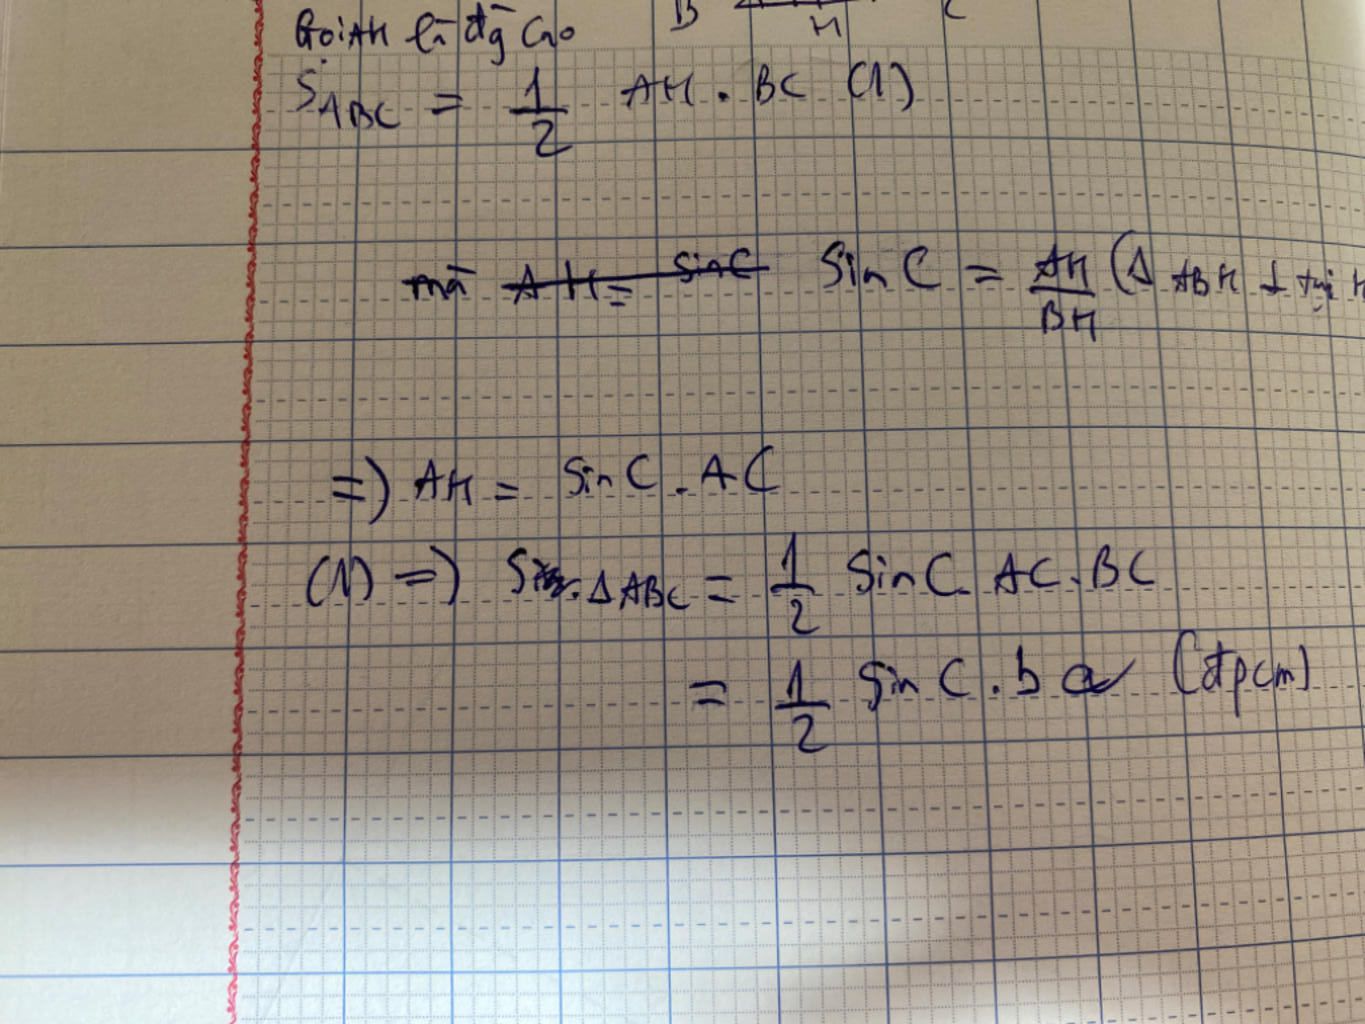 B H C
Gọi AH là đg cao
S ABC = 1/2 AH . BC (1)
mà AH = sin C Sin C = AH/BH (Δ ABH ⊥ tại H
=) AH = Sin C . AC
(1) =) S Δ ABC = 1/2 Sin C . AC . BC
= 1/2 Sin C . b a (đpcm)